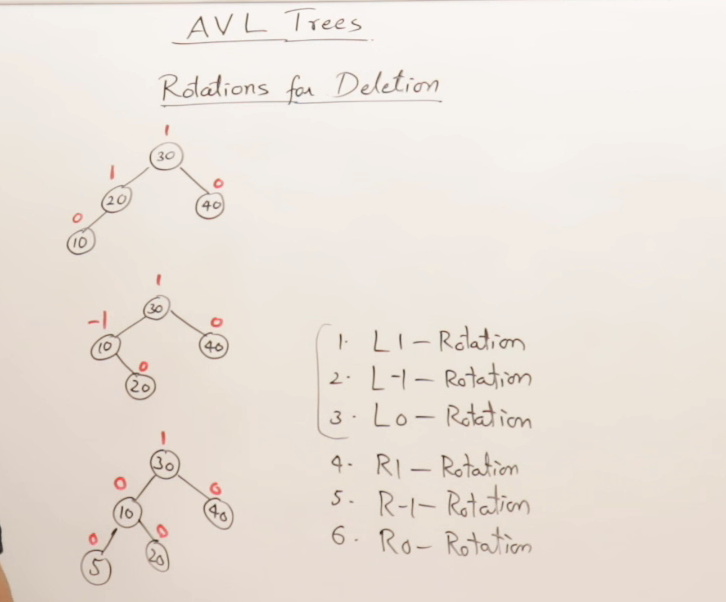 AVL Trees
Rotations for Deletion
1
30
1
20
0
40
0
10
1
30
-1
10
0
40
0
20
1
30
0
10
0
40
0
5
0
20
1. L1 - Rotation
2. L-1 - Rotation
3. L0 - Rotation
4. R1 - Rotation
5. R-1 - Rotation
6. R0 - Rotation